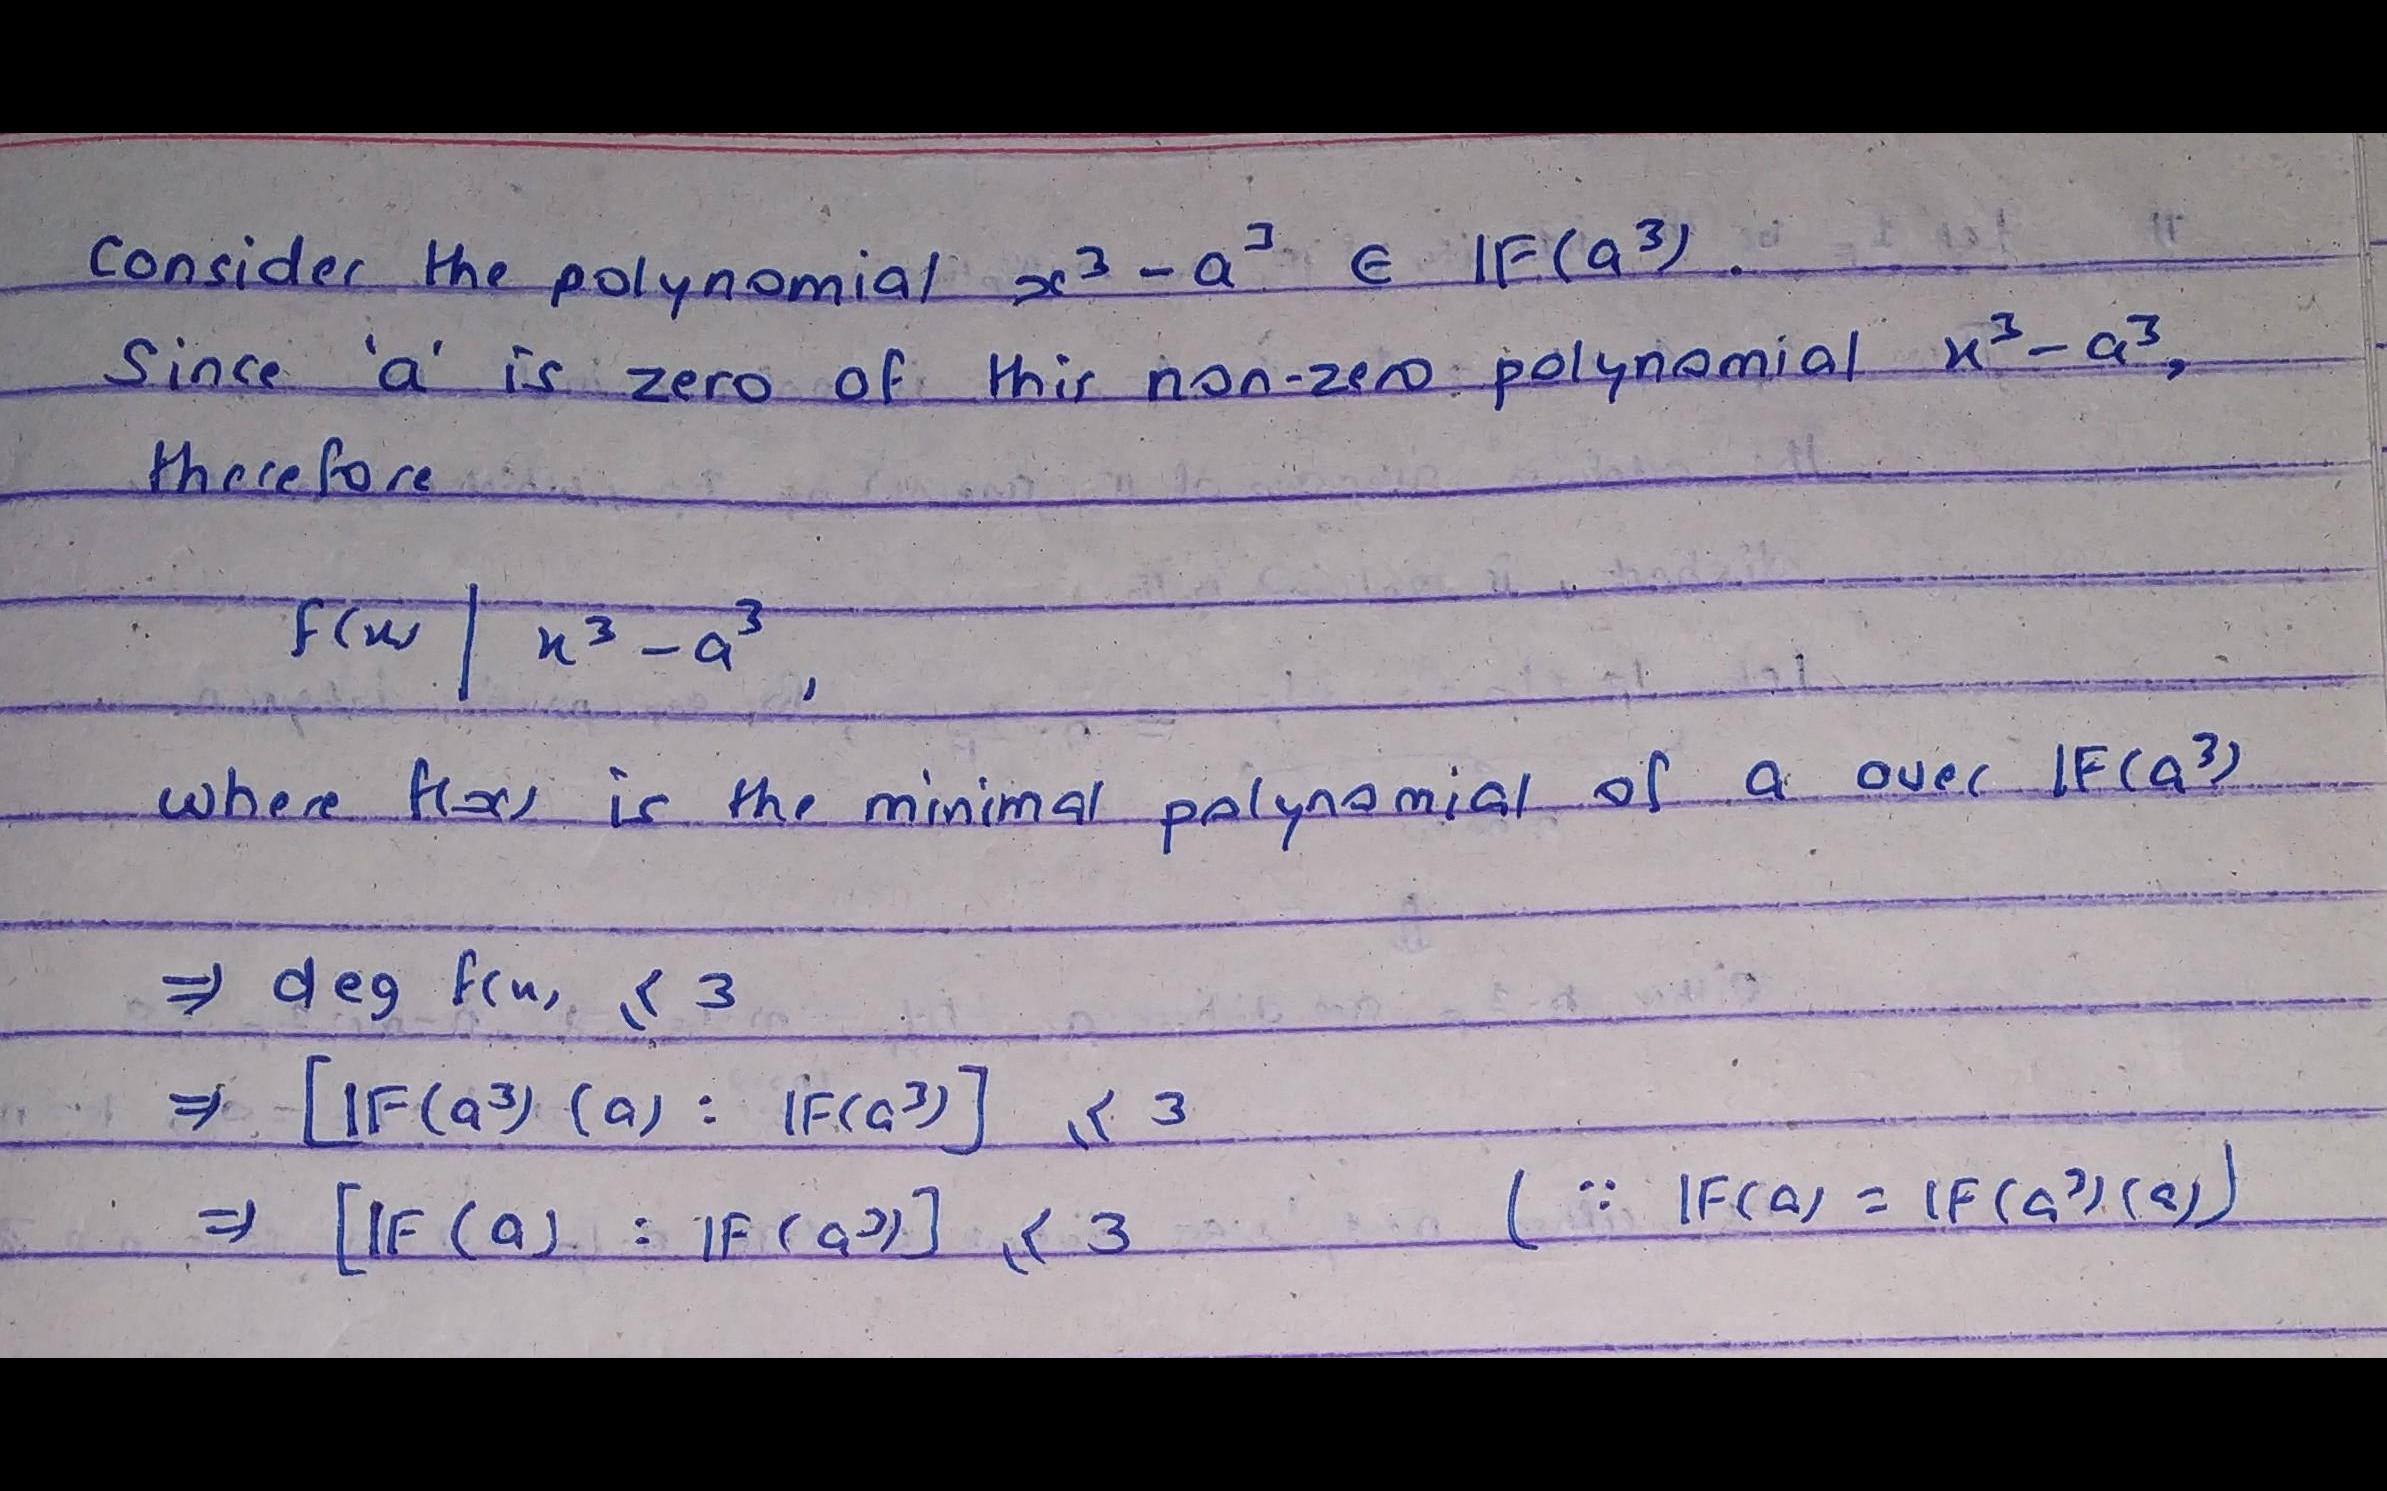 Consider the polynomial x³ - a³ ∈ IF(a³).
Since 'a' is zero of this non-zero polynomial x³ - a³,
therefore
f(x) | x³ - a³,
where f(x) is the minimal polynomial of a over IF(a³)
⇒ deg f(x) ⩽ 3
⇒ [IF(a³)(a) : IF(a³)] ⩽ 3
⇒ [IF(a) : IF(a³)] ⩽ 3 (∵ IF(a) = IF(a³)(a))